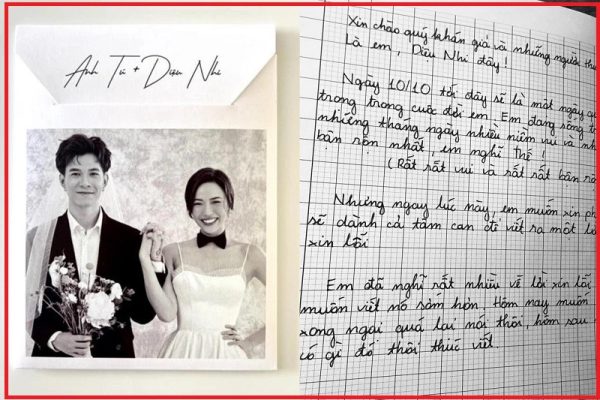 Anh Tú + Diệu Nhi
Xin chào quý khán giả và những người thư
Là em, Diệu Nhi đây!
Ngày 10/10 tới đây sẽ là một ngày qu
trọng trong cuộc đời em. Em đang sống tr
những tháng ngày nhiều niềm vui và nh
bận rộn nhất, em nghĩ thế!
(Rất rất vui và rất rất bận rộ
Nhưng ngay lúc này, em muốn xin ph
sẽ dành cả tâm can để viết ra một l
xin lỗi
Em đã nghĩ rất nhiều về lời xin lỗi
muốn viết nó sớm hơn. Hôm nay muốn
xong ngại quá lại nói thôi, hôm sau
có gì đó thôi thúc viết